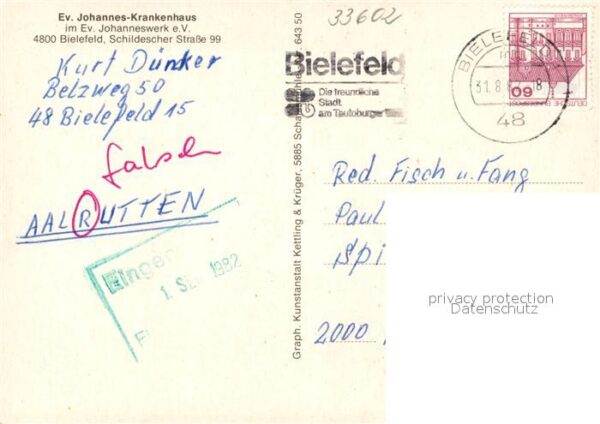 Ev. Johannes-Krankenhaus
im Ev. Johanneswerk e.V.
4800 Bielefeld, Schildescher Straße 99
Kurt Dünker
Belzweg 50
48 Bielefeld 15
falsch
AALRUTTEN
Eingeg
1. SEP. 1982
Graph. Kunstanstalt Kettling & Krüger, 5885 Schalksmühle 643 50
33602
Bielefeld
Die freundliche
Stadt
am Teutoburger Wald
BIELEFELD
31.8. 18
48
DEUTSCHE BUNDESPOST
60
Red. Fisch u. Fang
Paul
Spi
2000
privacy protection
Datenschutz